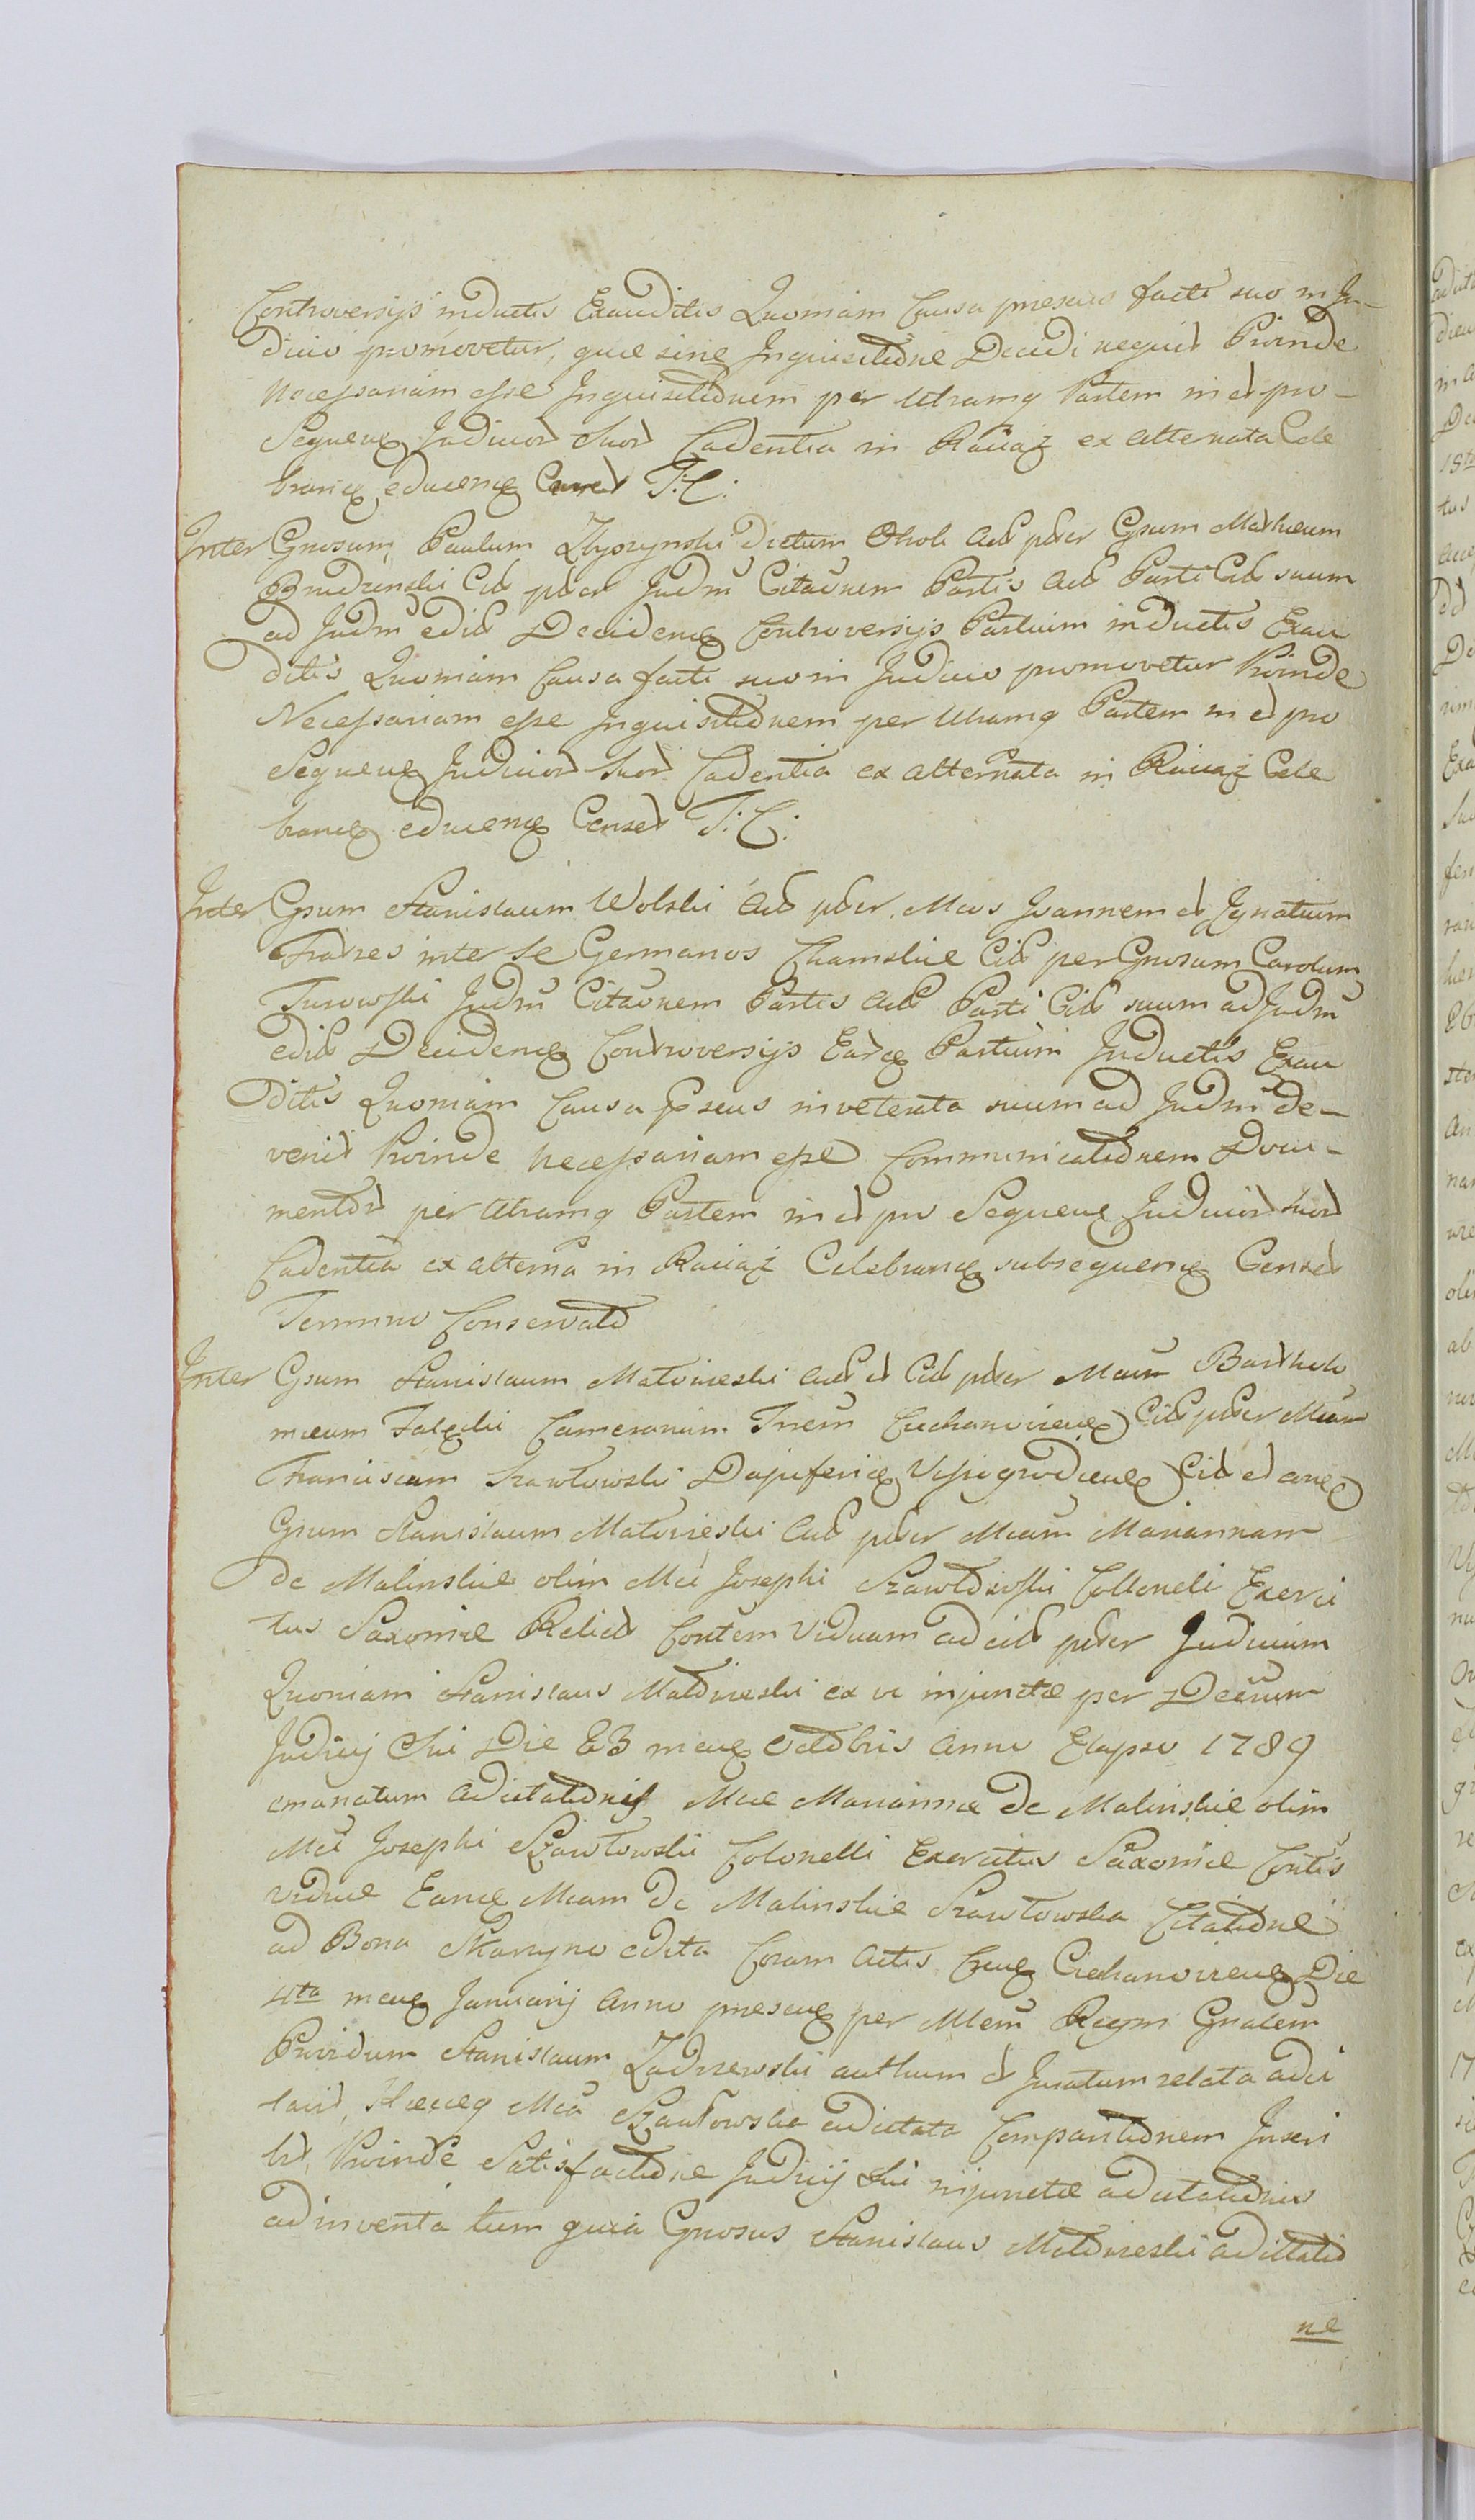 Controversijs inductis Exauditis Quoniam Causa presens facti suo in Ju-
dicio promovetur, quæ sine Inquisitione Decidi nequit Proinde
Necessariam esse Inquisitionem per Utramq Partem in et pro-
Sequenq Judicior Suor Cadentia in Raciąz ex alternata Cele
branq educenq Censet T: C:
Inter Gnosum Paulum Zbyszynski Dictum Okoh Act pter Gsum Mathæum
Brudzinski Cit pter Judm Citaonem Partis Act Parti Cit suum
ad Judm edit Decidenq Controversijs Partium inductis Exau
ditis Quoniam Causa facti suo in Judicio promovetur Proinde
Necessariam esse Inquisitionem per Utramq Partem in et pro
Sequenq Judicior Suor Cadentia ex alternata in Raciąż Cele
branq educenq Censet T: C:
Inter Gsum Stanislaum Wolski Act pter Mcos Joannem et Ignatium
Fratres inter se Germanos Chamskie Cit per Gnosum Carolum
Turowski Judm Citaonem Partis Act Parti Cit suum ad Judm
edit Decidenq Controversijs Earq Partium Inductis Exau
ditis Quoniam Causa pseus inveterata suum ad Judm de-
venit Proinde Necessariam esse Communicationem Docu-
mentor per Utramq Partem in et pro Sequenq Judicior Suor
Cadentia ex alterna in Raciąż Celebranq subsequenq Censet
Termino Conservato
Inter Gsum Stanislaum Matowieski Act et Cit pter Mcum Bartholo
mæum Cameranum Trrem Ciechanovienq Cit pter Mcum
Franciscum Szawłowski Dapiferiq Vissogrodienq Cit et eunq
Gsum Stanislaum Matowieski Act pter Mcam Mariannam
de Malinskie olim Mci Josephi Szawłowski Colloneli Exerci
tus Saxoniæ Relict Contem Viduam ad cit pter Judicium
Quoniam Stanislaus Matowieski ex vi injunctæ per Decrum
Judicij Sui Die 23 menq Octobris Anno Elapso 1789
emanatum adcitationis Mcæ Mariannæ de Malinskie olim
Mci Josephi Szawłowski Colonelli Exercitus Saxoniæ Contis
viduæ Eanq Mcam de Malinskie Szawłowska Citatione
ad Bona edita Coram Actis Crenq Ciechanovienq Die
4ta menq Januarij Anno presenq per Mlem Regni Gnalem
Providum Stanislaum Zadrzewski authum et Juratum relata adci
tavit, Hæcq Mca Szawłowska adcitata Comparitionem Inseri
tit, Proinde Satisfactione Judicij Sui injunctæ adcitationis
adinventa tum quia Gnosus Stanislaus Matowieski adcitatio
ne